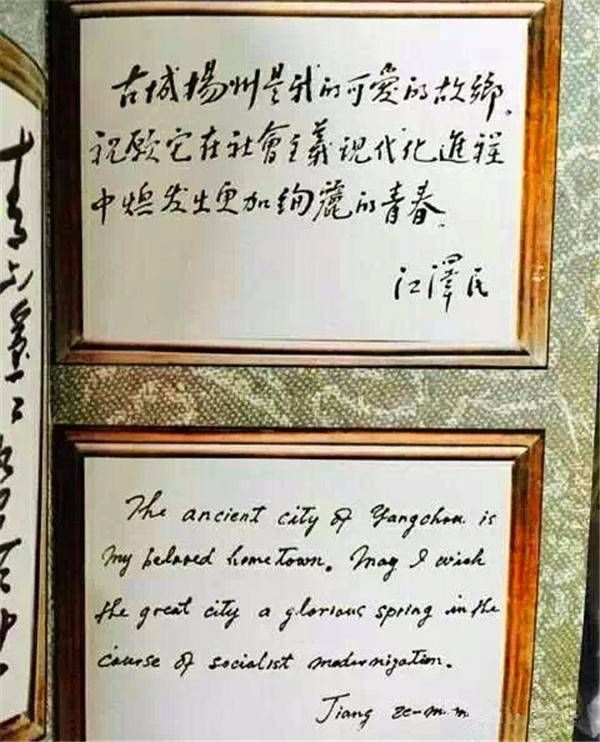 古城揚州是我的可愛的故鄉。
祝願它在社會主義現代化進程
中煥发出更加絢麗的青春。
江澤民
The ancient city of Yangchou is
my beloved hometown. May I wish
the great city a glorious spring in the
course of socialist modernization.
Jiang Ze-min